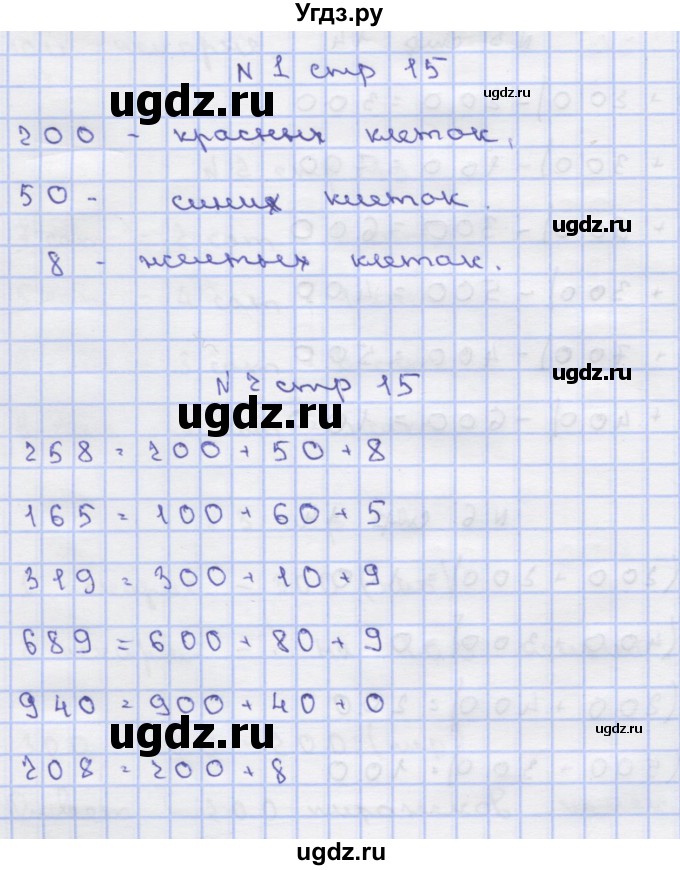 Угдз.ру
N 1 стр 15
ugdz.ru
ugdz.ru
200 - красных клеток,
50 - синих клеток.
ugdz.ru
8 - желтых клеток.
ugdz.ru
N 2 стр 15
ugdz.ru
258 = 200 + 50 + 8
165 = 100 + 60 + 5
319 = 300 + 10 + 9
689 = 600 + 80 + 9
940 = 900 + 40 + 0
ugdz.ru
ugdz.ru
208 = 200 + 8
ugdz.ru